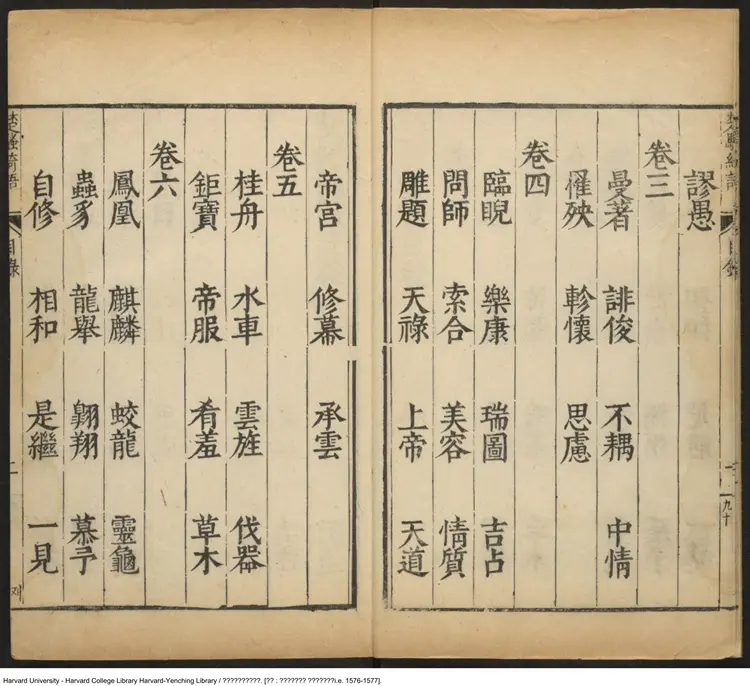 謬愚
卷三
曼著 誹俊 不耦 中情
罹殃 軫懷 思慮
卷四
臨睨 樂康 瑞圖 吉占
問師 索合 美容 情質
雕題 天祿 上帝 天道
帝宮 修幕 承雲
卷五
桂舟 水車 雲旌 伐器
鉅寶 帝服 肴羞 草木
卷六
鳳凰 麒麟 蛟龍 靈龜
蟲豸 龍舉 翺翔 慕予
自修 相和 是繼 一見
楚騷綺語
目錄
二
Harvard University - Harvard College Library Harvard-Yenching Library / ??????????. [?? : ??????? ???????i.e. 1576-1577].